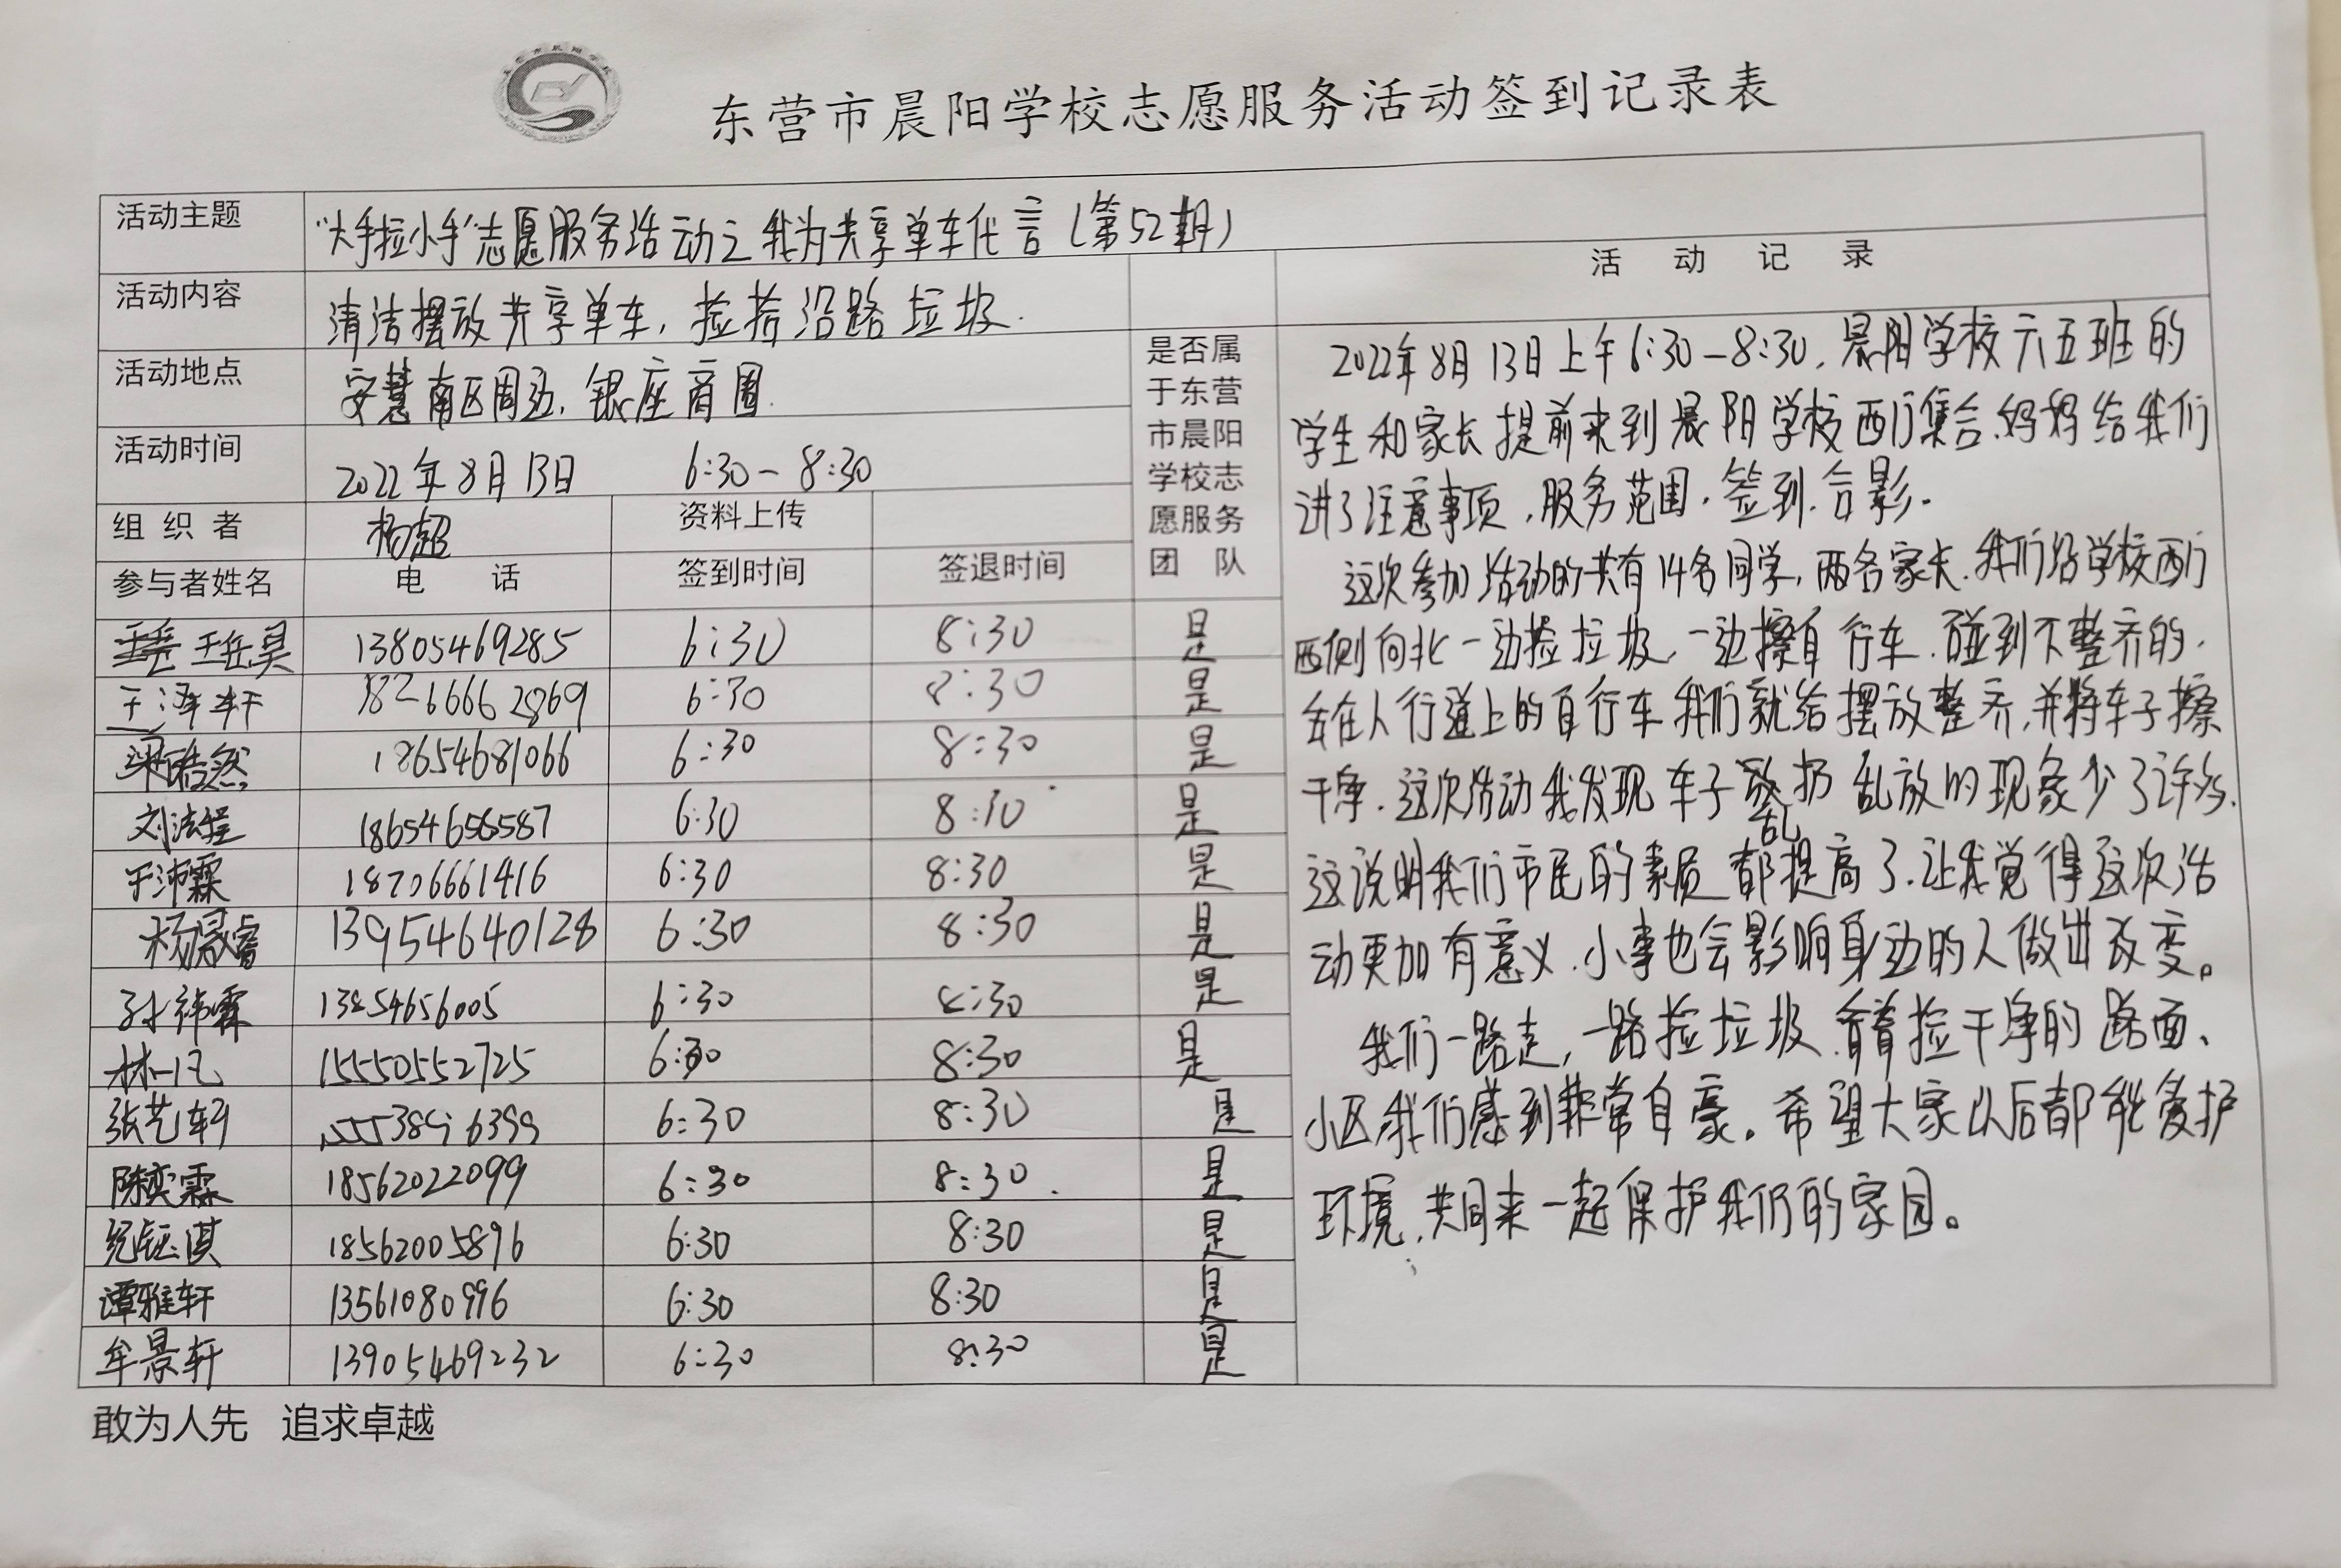 东营市晨阳学校志愿服务活动签到记录表
活动主题 “大手拉小手”志愿服务活动之我为共享单车代言(第52期)
活动内容 清洁摆放共享单车,捡拾沿路垃圾.
活动地点 安慧南区周边,银座商圈.
活动时间 2022年8月13日 6:30-8:30
组织者 杨超 资料上传
参与者姓名 电话 签到时间 签退时间
是否属
于东营
市晨阳
学校志
愿服务
团队
王岳昊 13805469285 6:30 8:30 是
王泽轩 18266662869 6:30 8:30 是
梁皓然 18654681066 6:30 8:30 是
刘法程 18654656587 6:30 8:30 是
于沛霖 18706661416 6:30 8:30 是
杨晟睿 13954640128 6:30 8:30 是
孙祎霖 13854656005 6:30 8:30 是
林一凡 15550552725 6:30 8:30 是
张艺轩 6:30 8:30 是
陈奕霖 18562022099 6:30 8:30. 是
18562005896 6:30 8:30 是
谭雅轩 13561080996 6:30 8:30 是
牟景轩 13905469232 6:30 8:30 是
活动记录
2022年8月13日上午6:30-8:30,晨阳学校六五班的
学生和家长提前来到晨阳学校西门集合.妈妈给我们
讲了注意事项,服务范围,签到.合影.
这次参加活动的共有14名同学,两名家长.我们沿学校西门
西侧向北一边捡垃圾,一边擦自行车.碰到不整齐的,
在人行道上的自行车我们就给摆放整齐,并将车子擦
干净.这次活动我发现车子乱扔乱放的现象少了许多.
这说明我们市民的素质都提高了.让我觉得这次活
动更加有意义.小事也会影响身边的人做出改变。
我们一路走,一路捡垃圾.看着捡干净的路面、
小区我们感到非常自豪。希望大家以后都能爱护
环境,共同来一起保护我们的家园。
敢为人先 追求卓越